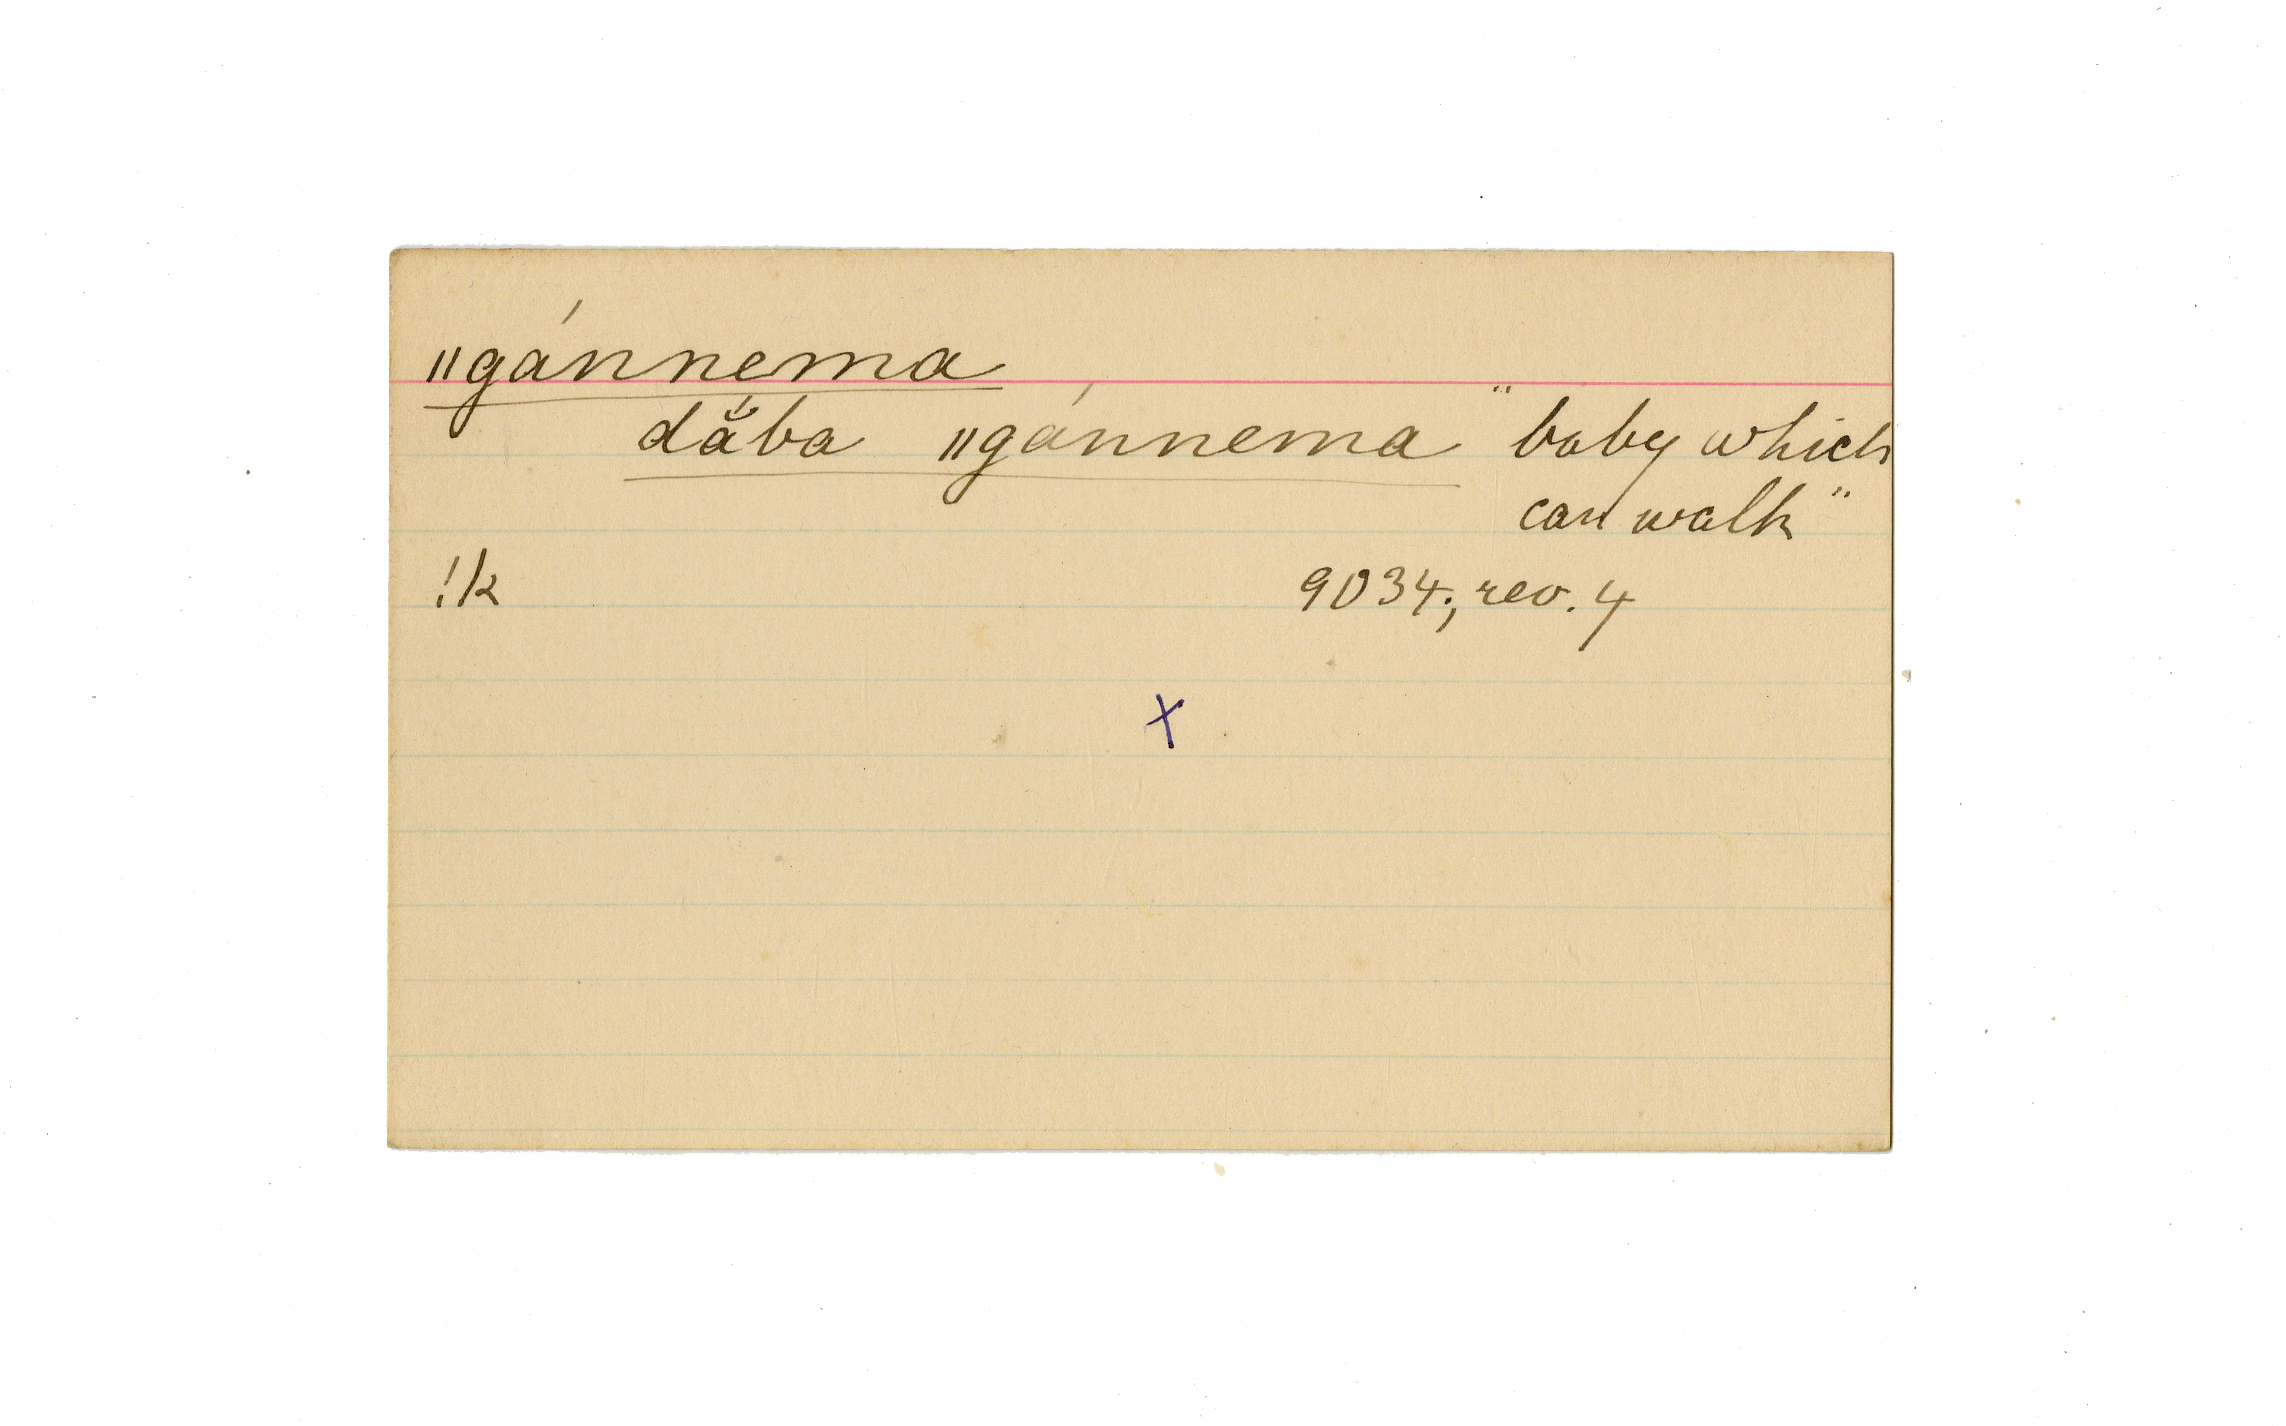 ǁgánnema
dắba ǁgánnema "baby which
can walk"
!k 9034; rev. 4
x